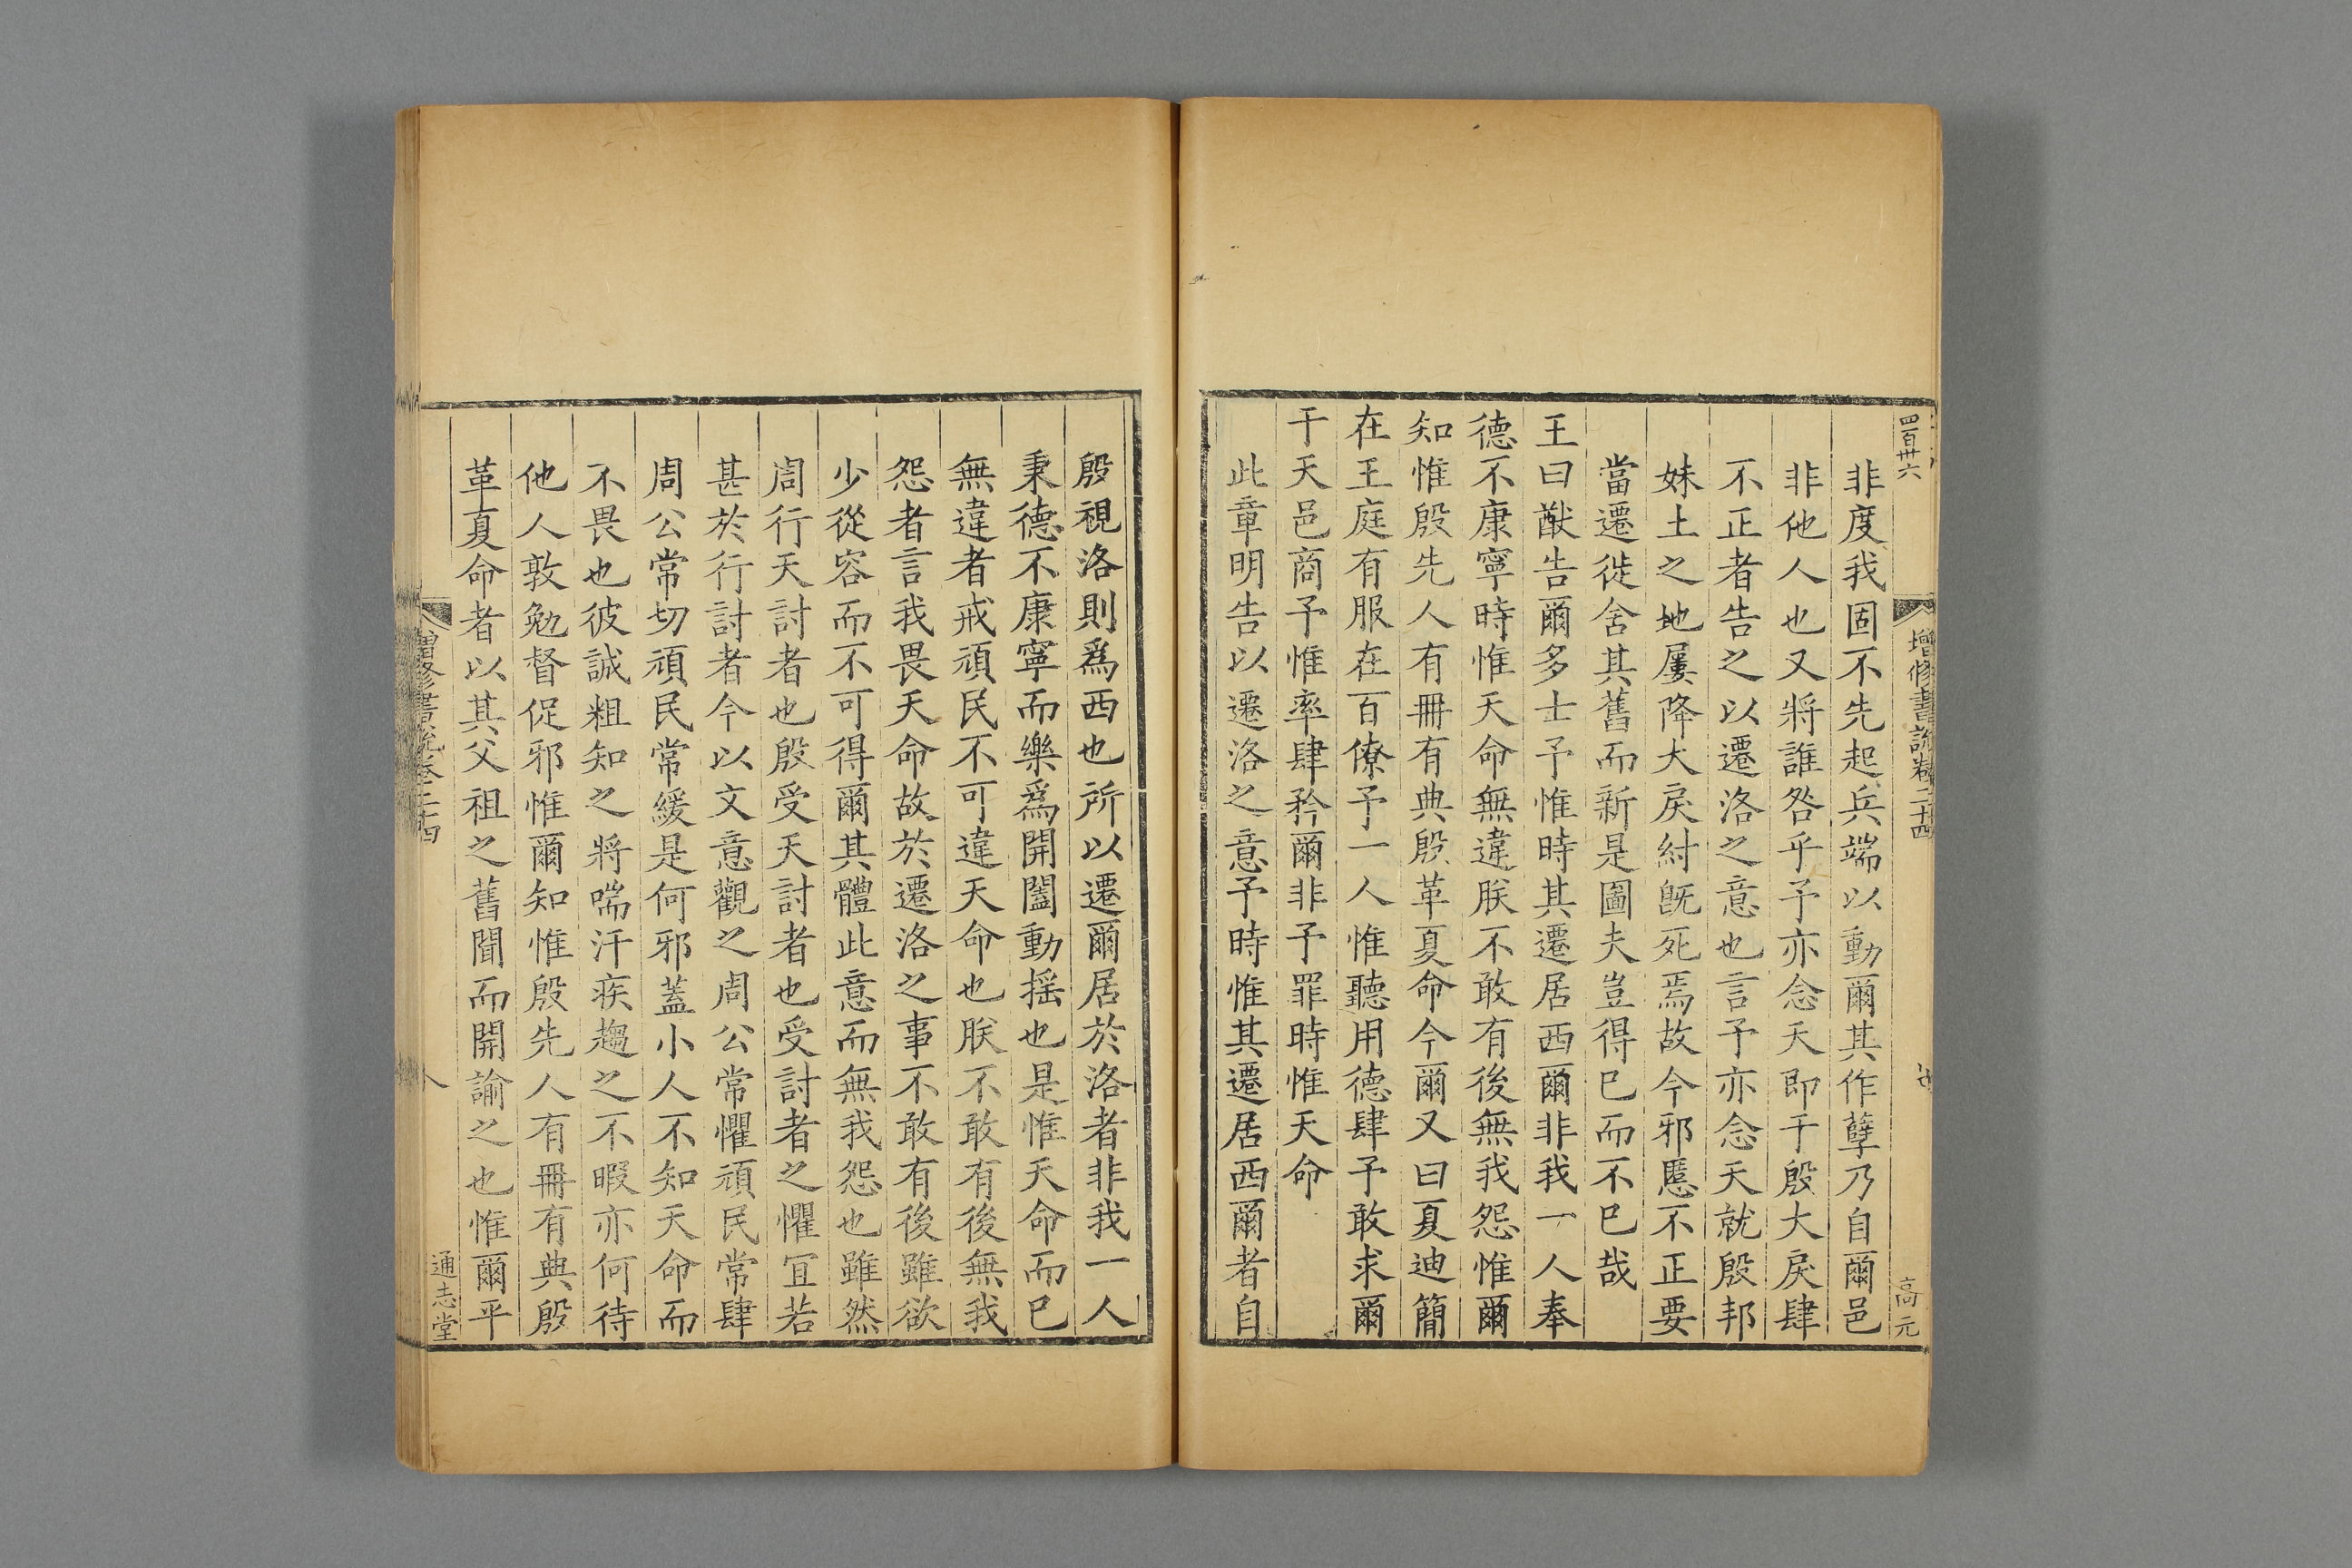 四百卅六
增修書說卷二十四
高元
非度我固不先起兵端以動爾其作孽乃自爾邑
非他人也又將誰咎乎予亦念天即于殷大戾肆
不正者告之以遷洛之意也言予亦念天就殷邦
妹土之地屢降大戾紂旣死焉故今邪慝不正要
當遷徙舍其舊而新是圖夫豈得已而不已哉
王曰猷告爾多士予惟時其遷居西爾非我一人奉
德不康寧時惟天命無違朕不敢有後無我怨惟爾
知惟殷先人有冊有典殷革夏命今爾又曰夏迪簡
在王庭有服在百僚予一人惟聽用德肆予敢求爾
于天邑商予惟率肆矜爾非予罪時惟天命
此章明告以遷洛之意予時惟其遷居西爾者自
殷視洛則爲西也所以遷爾居於洛者非我一人
秉德不康寧而樂爲開闔動搖也是惟天命而已
無違者戒頑民不可違天命也朕不敢有後無我
怨者言我畏天命故於遷洛之事不敢有後雖欲
少從容而不可得爾其體此意而無我怨也雖然
周行天討者也殷受天討者也受討者之懼宜若
甚於行討者今以文意觀之周公常懼頑民常肆
周公常切頑民常緩是何邪蓋小人不知天命而
不畏也彼誠粗知之將喘汗疾趨之不暇亦何待
他人敦勉督促邪惟爾知惟殷先人有冊有典殷
革夏命者以其父祖之舊聞而開諭之也惟爾平
增修書說卷二十四
八
通志堂